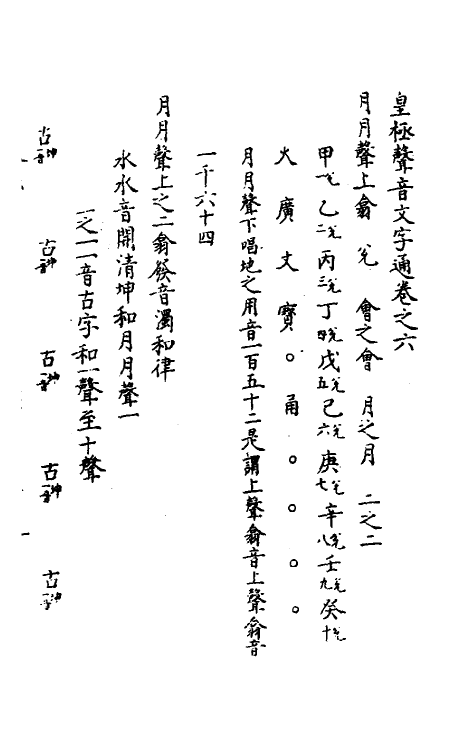 皇極聲音文字通卷之六
月月聲上翕 兌 會之會 月之月 二之二
甲一兌乙二兌丙三兌丁四兌戊五兌己六兌庚七兌辛八兌壬九兌癸十兌
火廣丈寶○甬○○○○
月月聲下唱地之用音一百五十二是謂上聲翕音上聲翕音
一千六十四
月月聲上之二翕發音濁和律
水水音開清坤和月月聲一
一之一一音古字和一聲至十聲
古坤一音 古坤一音 古坤一音 古坤一音 古坤一